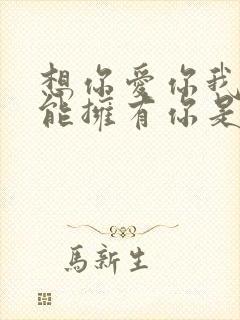 想你愛你我
能擁有你是
馬新生